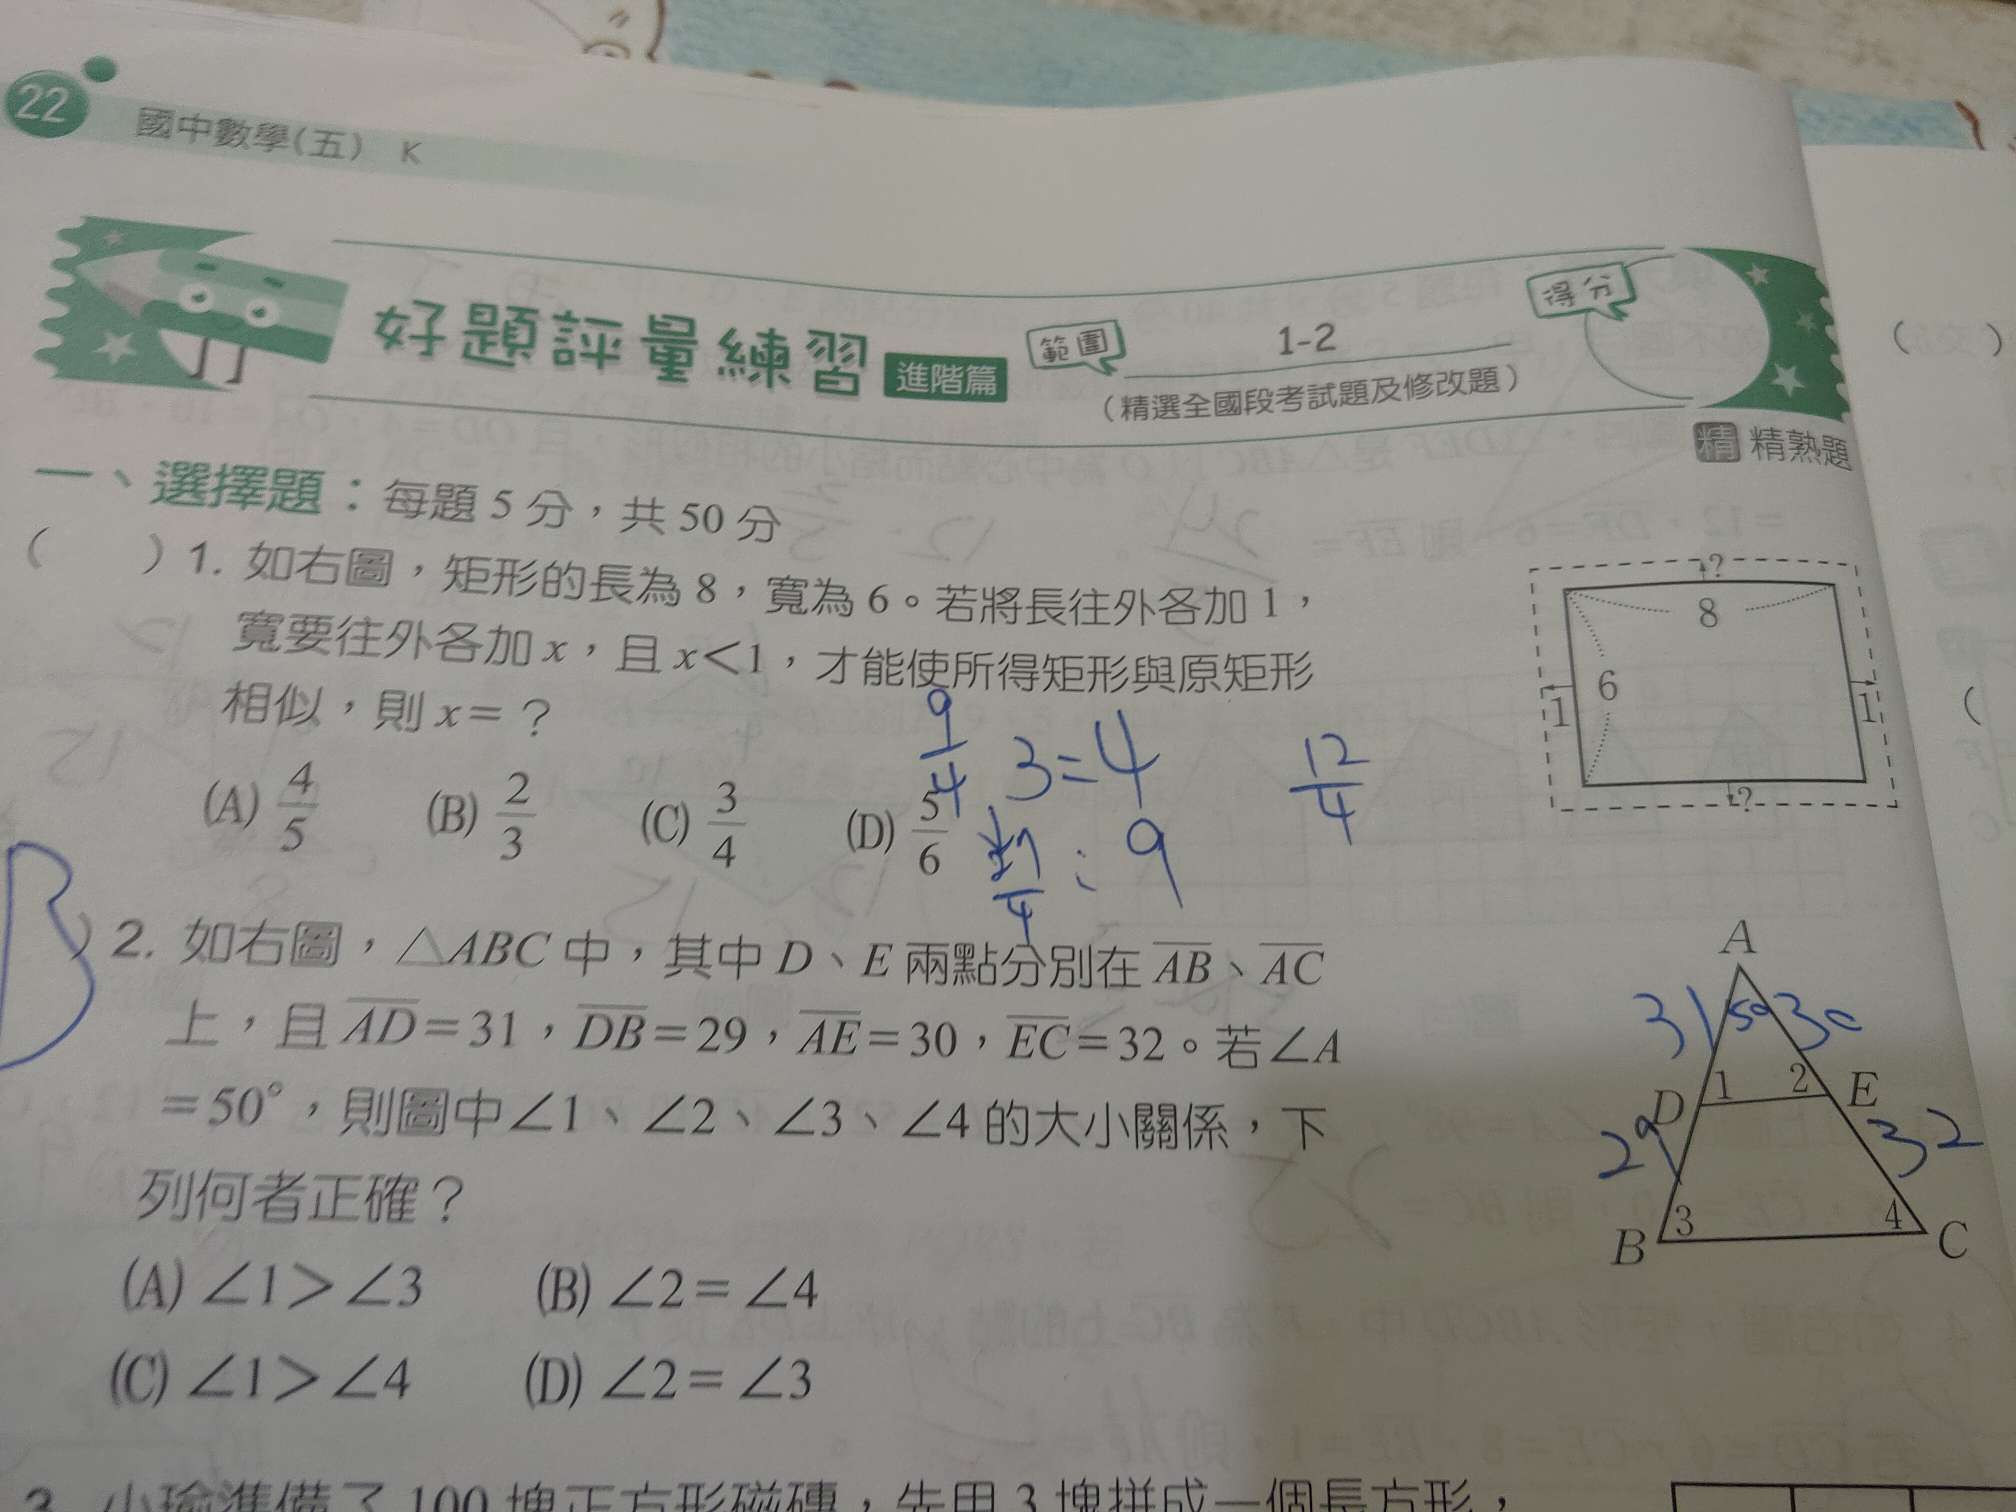 22
國中數學(五) K
好題評量練習 進階篇
範圍 1-2
得分
(精選全國段考試題及修改題)
精 精熟題
一、選擇題：每題 5 分，共 50 分
( ) 1. 如右圖，矩形的長為 8，寬為 6。若將長往外各加 1，
寬要往外各加 x，且 x＜1，才能使所得矩形與原矩形
相似，則 x＝？
(A) 4/5 (B) 2/3 (C) 3/4 (D) 5/6
?
8
6
1
1
?
9/4
3=4
: 9
12/4
B
) 2. 如右圖，△ABC 中，其中 D、E 兩點分別在 AB、AC
上，且 AD＝31，DB＝29，AE＝30，EC＝32。若∠A
＝50°，則圖中∠1、∠2、∠3、∠4 的大小關係，下
列何者正確？
(A) ∠1＞∠3 (B) ∠2＝∠4
(C) ∠1＞∠4 (D) ∠2＝∠3
A
31 50 30
D 1 2 E
29 32
B 3 4 C
3. 小瑜準備了 100 塊正方形磁磚，先用 3 塊拼成一個長方形，
( )
(